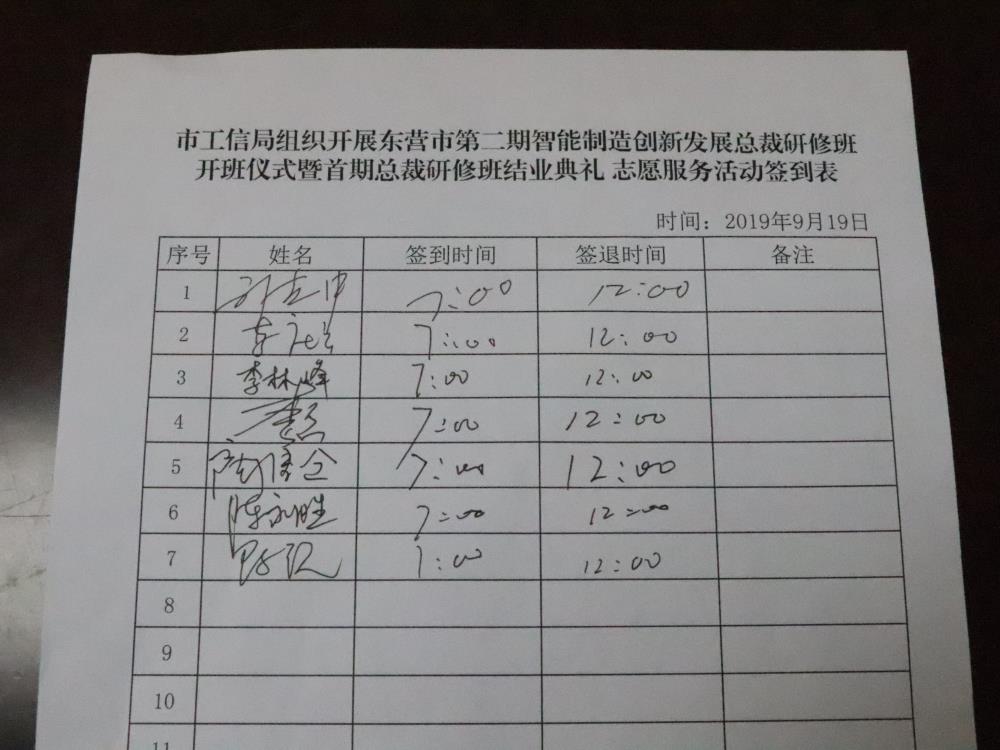 市工信局组织开展东营市第二期智能制造创新发展总裁研修班
开班仪式暨首期总裁研修班结业典礼 志愿服务活动签到表
时间：2019年9月19日
序号 姓名 签到时间 签退时间 备注
1 7:00 12:00
2 7:00 12:00
3 李林峰 7:00 12:00
4 7:00 12:00
5 7:00 12:00
6 陈永胜 7:00 12:00
7 7:00 12:00
8
9
10
11